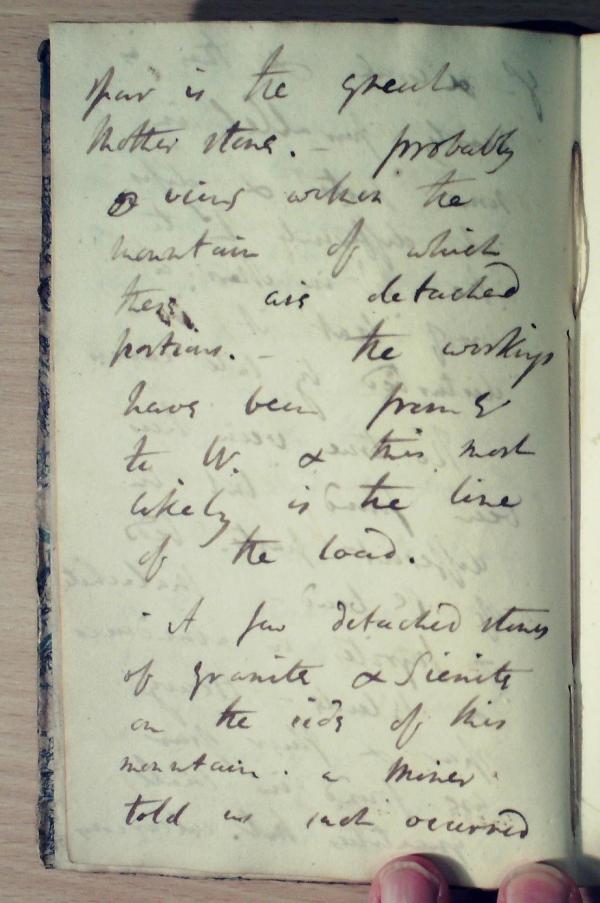 spar is the great
Mother stone. – probably
veins within the
mountain of which
these are detached
portions. – the workings
have been from E
to W. & this most
likely is the line
of the load.
- A few detached stones
of granite & Sienite
on the side of this
mountain. a Miner
told us such occurred